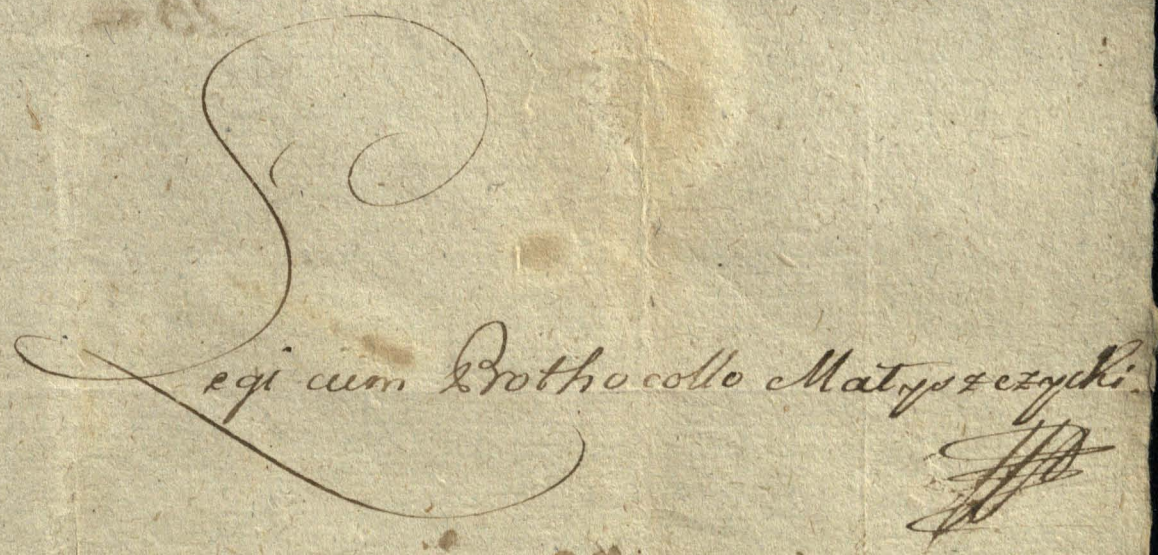 Legi cum Prothocollo Matyszczycki.